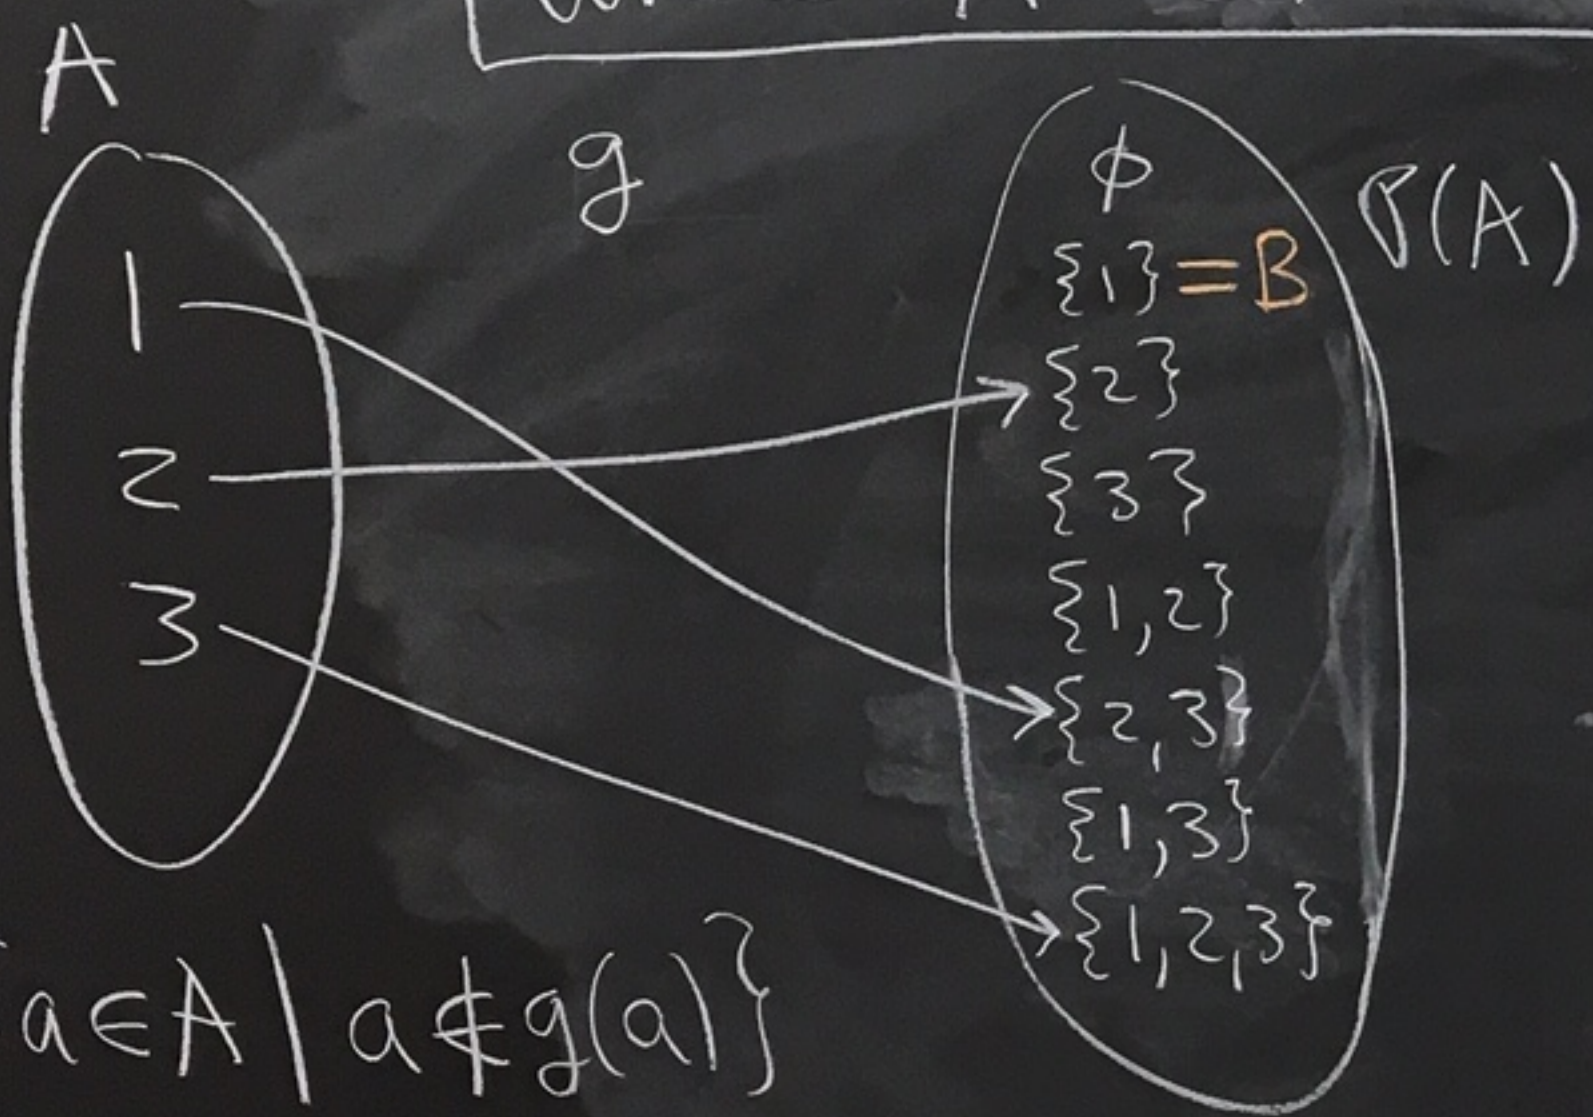 A
g
𝒫(A)
1
2
3
ϕ
{1} = B
{2}
{3}
{1,2}
{2,3}
{1,3}
{1,2,3}
a∈A | a∉g(a)}